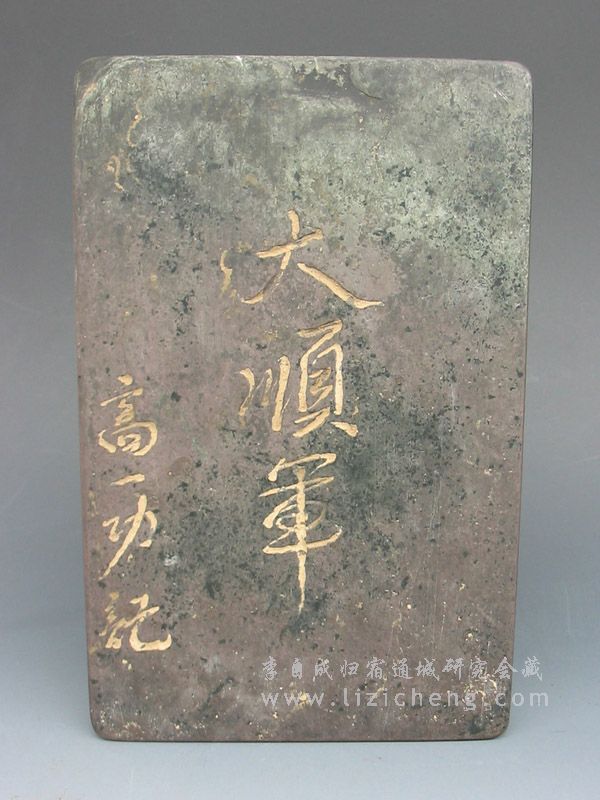 大順軍
高一功記
李自成归宿通城研究会藏
www.lizicheng.com